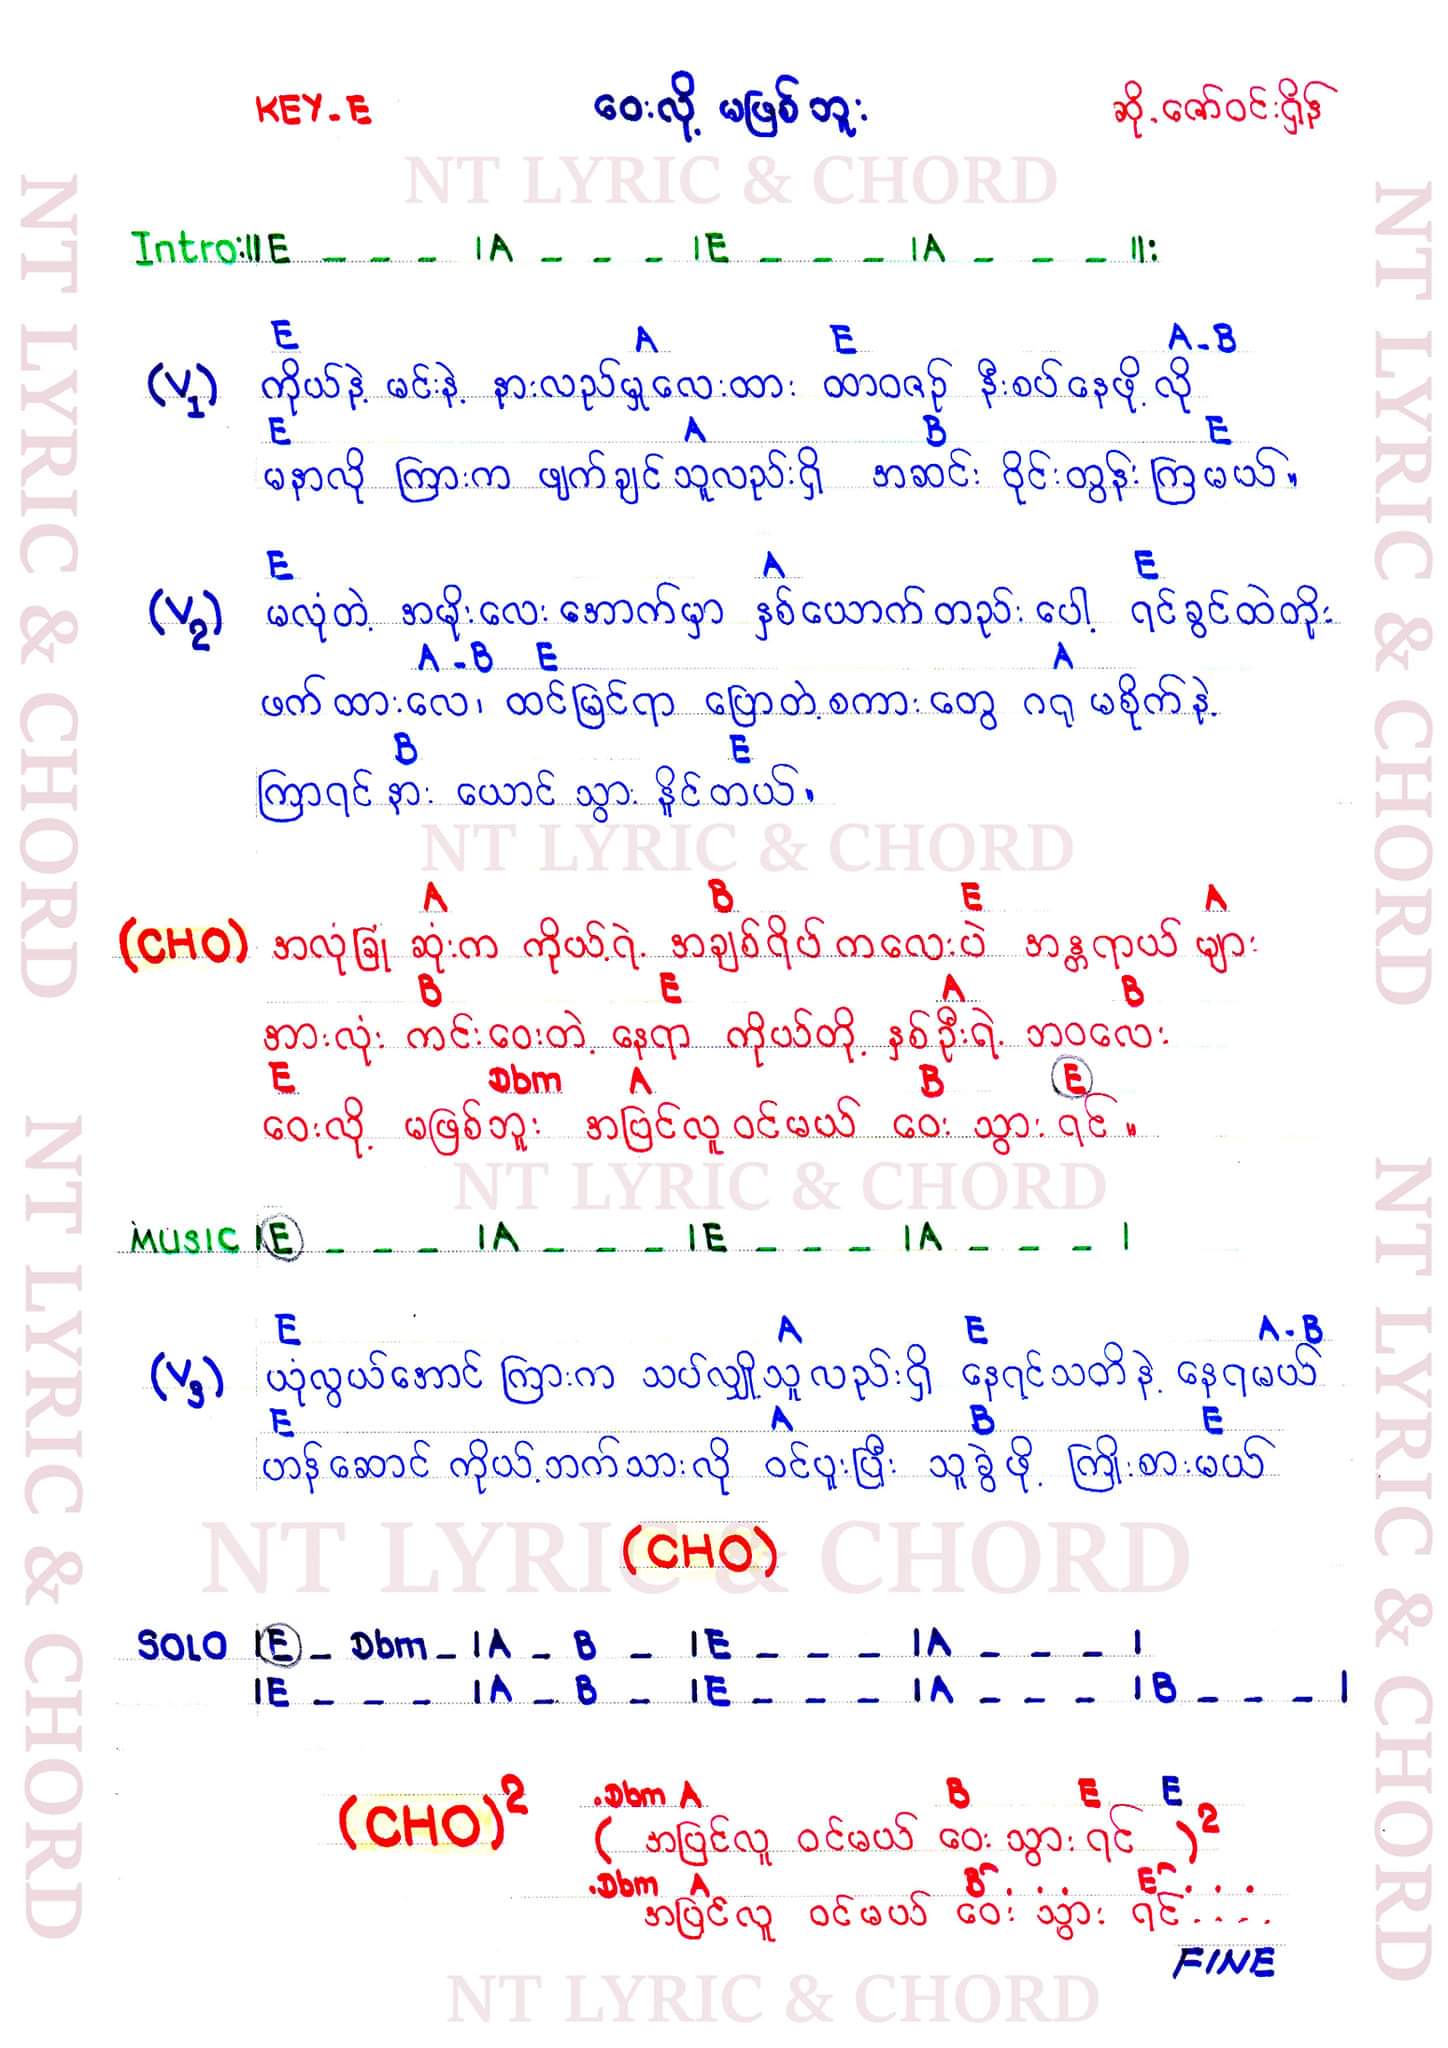 KEY-E ဝေးလို့ မဖြစ်ဘူး ဆို.ဇော်ဝင်းရှိန်
NT LYRIC & CHORD
Intro:||E _ _ _ |A _ _ _ |E _ _ _ |A _ _ _ ||:
E A E A-B
(V1) ကိုယ်နဲ့ မင်းနဲ့ နားလည်မှုလေးထား ထာဝစဉ် နီးစပ်နေဖို့လို
E A B E
မနာလို ကြားက ဖျက်ချင်သူလည်းရှိ အဆင်း ဝိုင်းတွန်းကြမယ်။
E A E
(V2) မလုံတဲ့ အမိုးလေးအောက်မှာ နှစ်ယောက်တည်းပေါ့ ရင်ခွင်ထဲတိုး
A-B E A
ဖက်ထားလေ၊ ထင်မြင်ရာ ပြောတဲ့စကားတွေ ဂရုမစိုက်နဲ့
B E
ကြာရင်နား ယောင်သွား နိုင်တယ်။
NT LYRIC & CHORD
A B E A
(CHO) အလုံခြုံ ဆုံးက ကိုယ့်ရဲ့ အချစ်ရိပ်ကလေးပဲ အန္တရာယ်များ
B E A B
အားလုံး ကင်းဝေးတဲ့ နေရာ ကိုယ်တို့ နှစ်ဦးရဲ့ ဘဝလေး
E Dbm A B E
ဝေးလို့ မဖြစ်ဘူး အပြင်လူဝင်မယ် ဝေး သွားရင်။
NT LYRIC & CHORD
MUSIC |E _ _ _ |A _ _ _ |E _ _ _ |A _ _ _ |
E A E A-B
(V3) ယုံလွယ်အောင် ကြားက သပ်လျှိုသူလည်းရှိ နေရင်သတိနဲ့ နေရမယ်
E A B E
ဟန်ဆောင် ကိုယ့်ဘက်သားလို ဝင်ပူးပြီး သူခွဲဖို့ ကြိုးစားမယ်
NT LYRIC & CHORD
(CHO)
SOLO |E _ Dbm _ |A _ B _ |E _ _ _ |A _ _ _ |
|E _ _ _ |A _ B _ |E _ _ _ |A _ _ _ |B _ _ _ |
.Dbm A B E E
(CHO)2 ( အပြင်လူ ဝင်မယ် ဝေး သွားရင် )2
.Dbm A B . . . E . . .
အပြင်လူ ဝင်မယ် ဝေး သွား ရင်....
FINE
NT LYRIC & CHORD
NT LYRIC & CHORD
NT LYRIC & CHORD
NT LYRIC & CHORD
NT LYRIC & CHORD